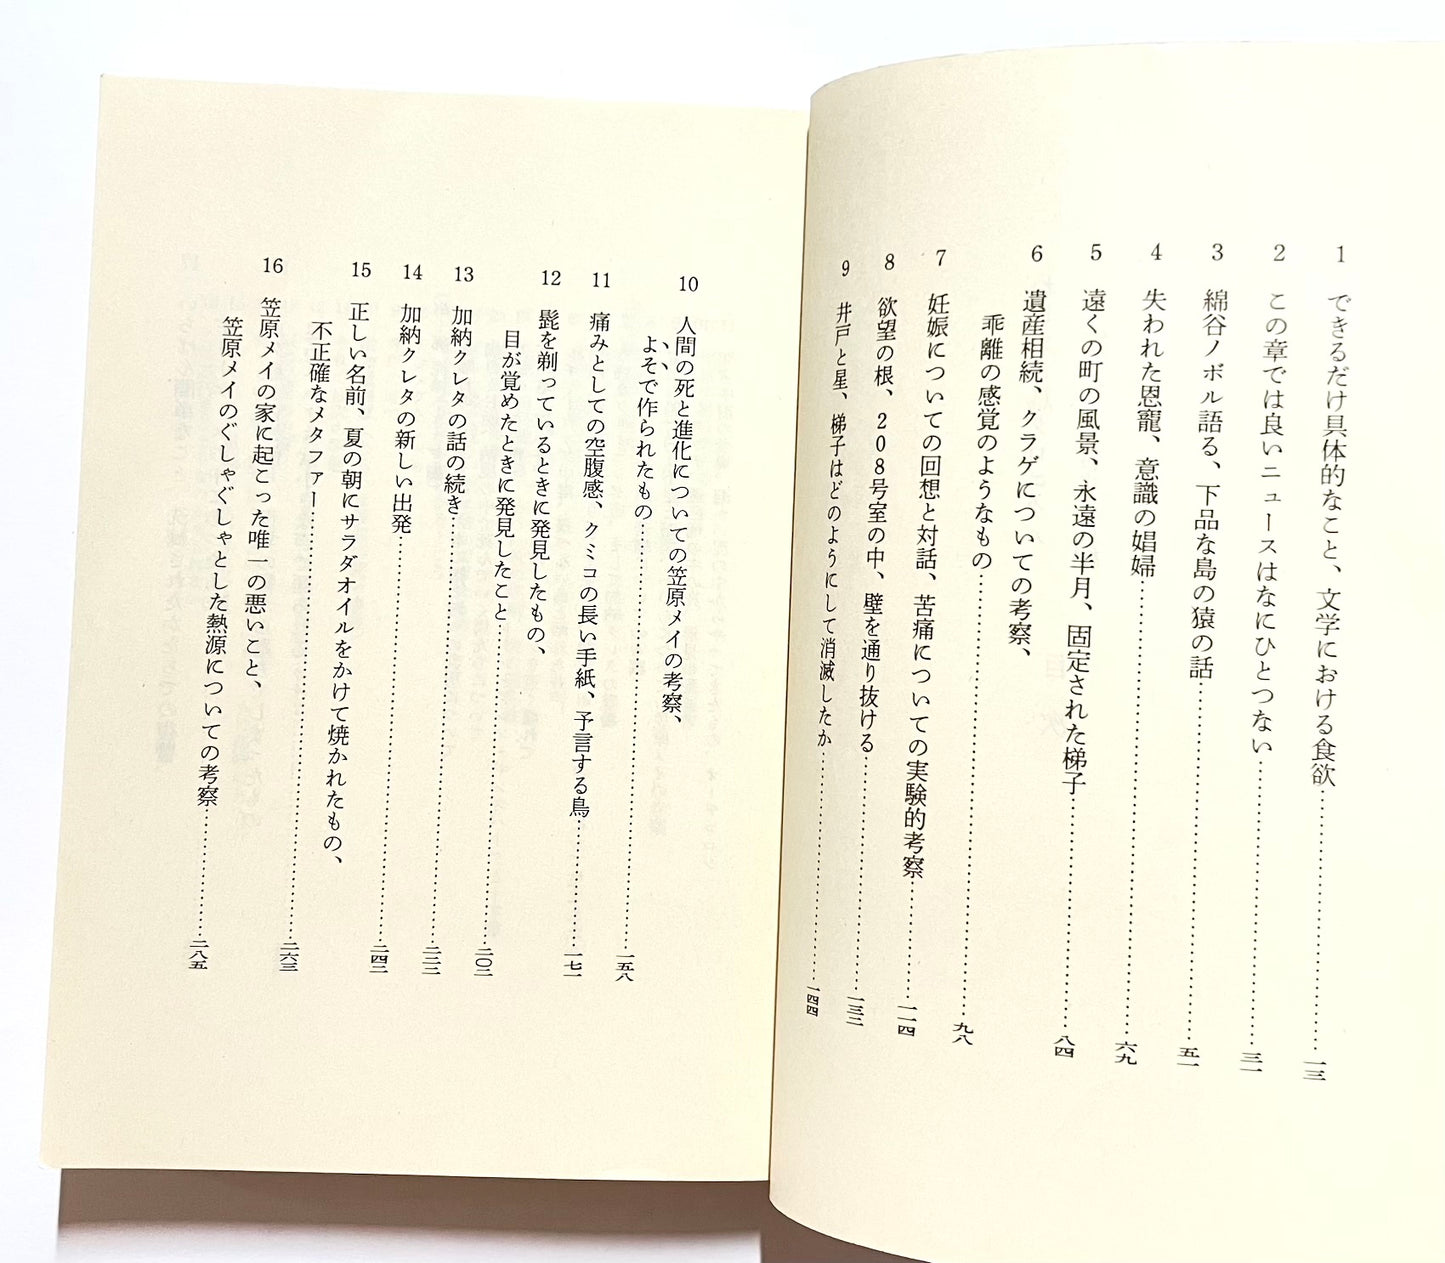 1 できるだけ具体的なこと、文学における食欲……一三
2 この章では良いニュースはなにひとつない……三一
3 綿谷ノボル語る、下品な島の猿の話……五一
4 失われた恩寵、意識の娼婦……六九
5 遠くの町の風景、永遠の半月、固定された梯子……八四
6 遺産相続、クラゲについての考察、
乖離の感覚のようなもの……九八
7 妊娠についての回想と対話、苦痛についての実験的考察……一一四
8 欲望の根、208号室の中、壁を通り抜ける……一三二
9 井戸と星、梯子はどのようにして消滅したか……一四四
10 人間の死と進化についての笠原メイの考察、
よそで作られたもの……一五八
11 痛みとしての空腹感、クミコの長い手紙、予言する鳥……一七一
12 髭を剃っているときに発見したもの、
目が覚めたときに発見したこと……二〇二
13 加納クレタの話の続き……二二二
14 加納クレタの新しい出発……二四二
15 正しい名前、夏の朝にサラダオイルをかけて焼かれたもの、
不正確なメタファー……二六三
16 笠原メイの家に起こった唯一の悪いこと、
笠原メイのぐしゃぐしゃとした熱源についての考察……二八五